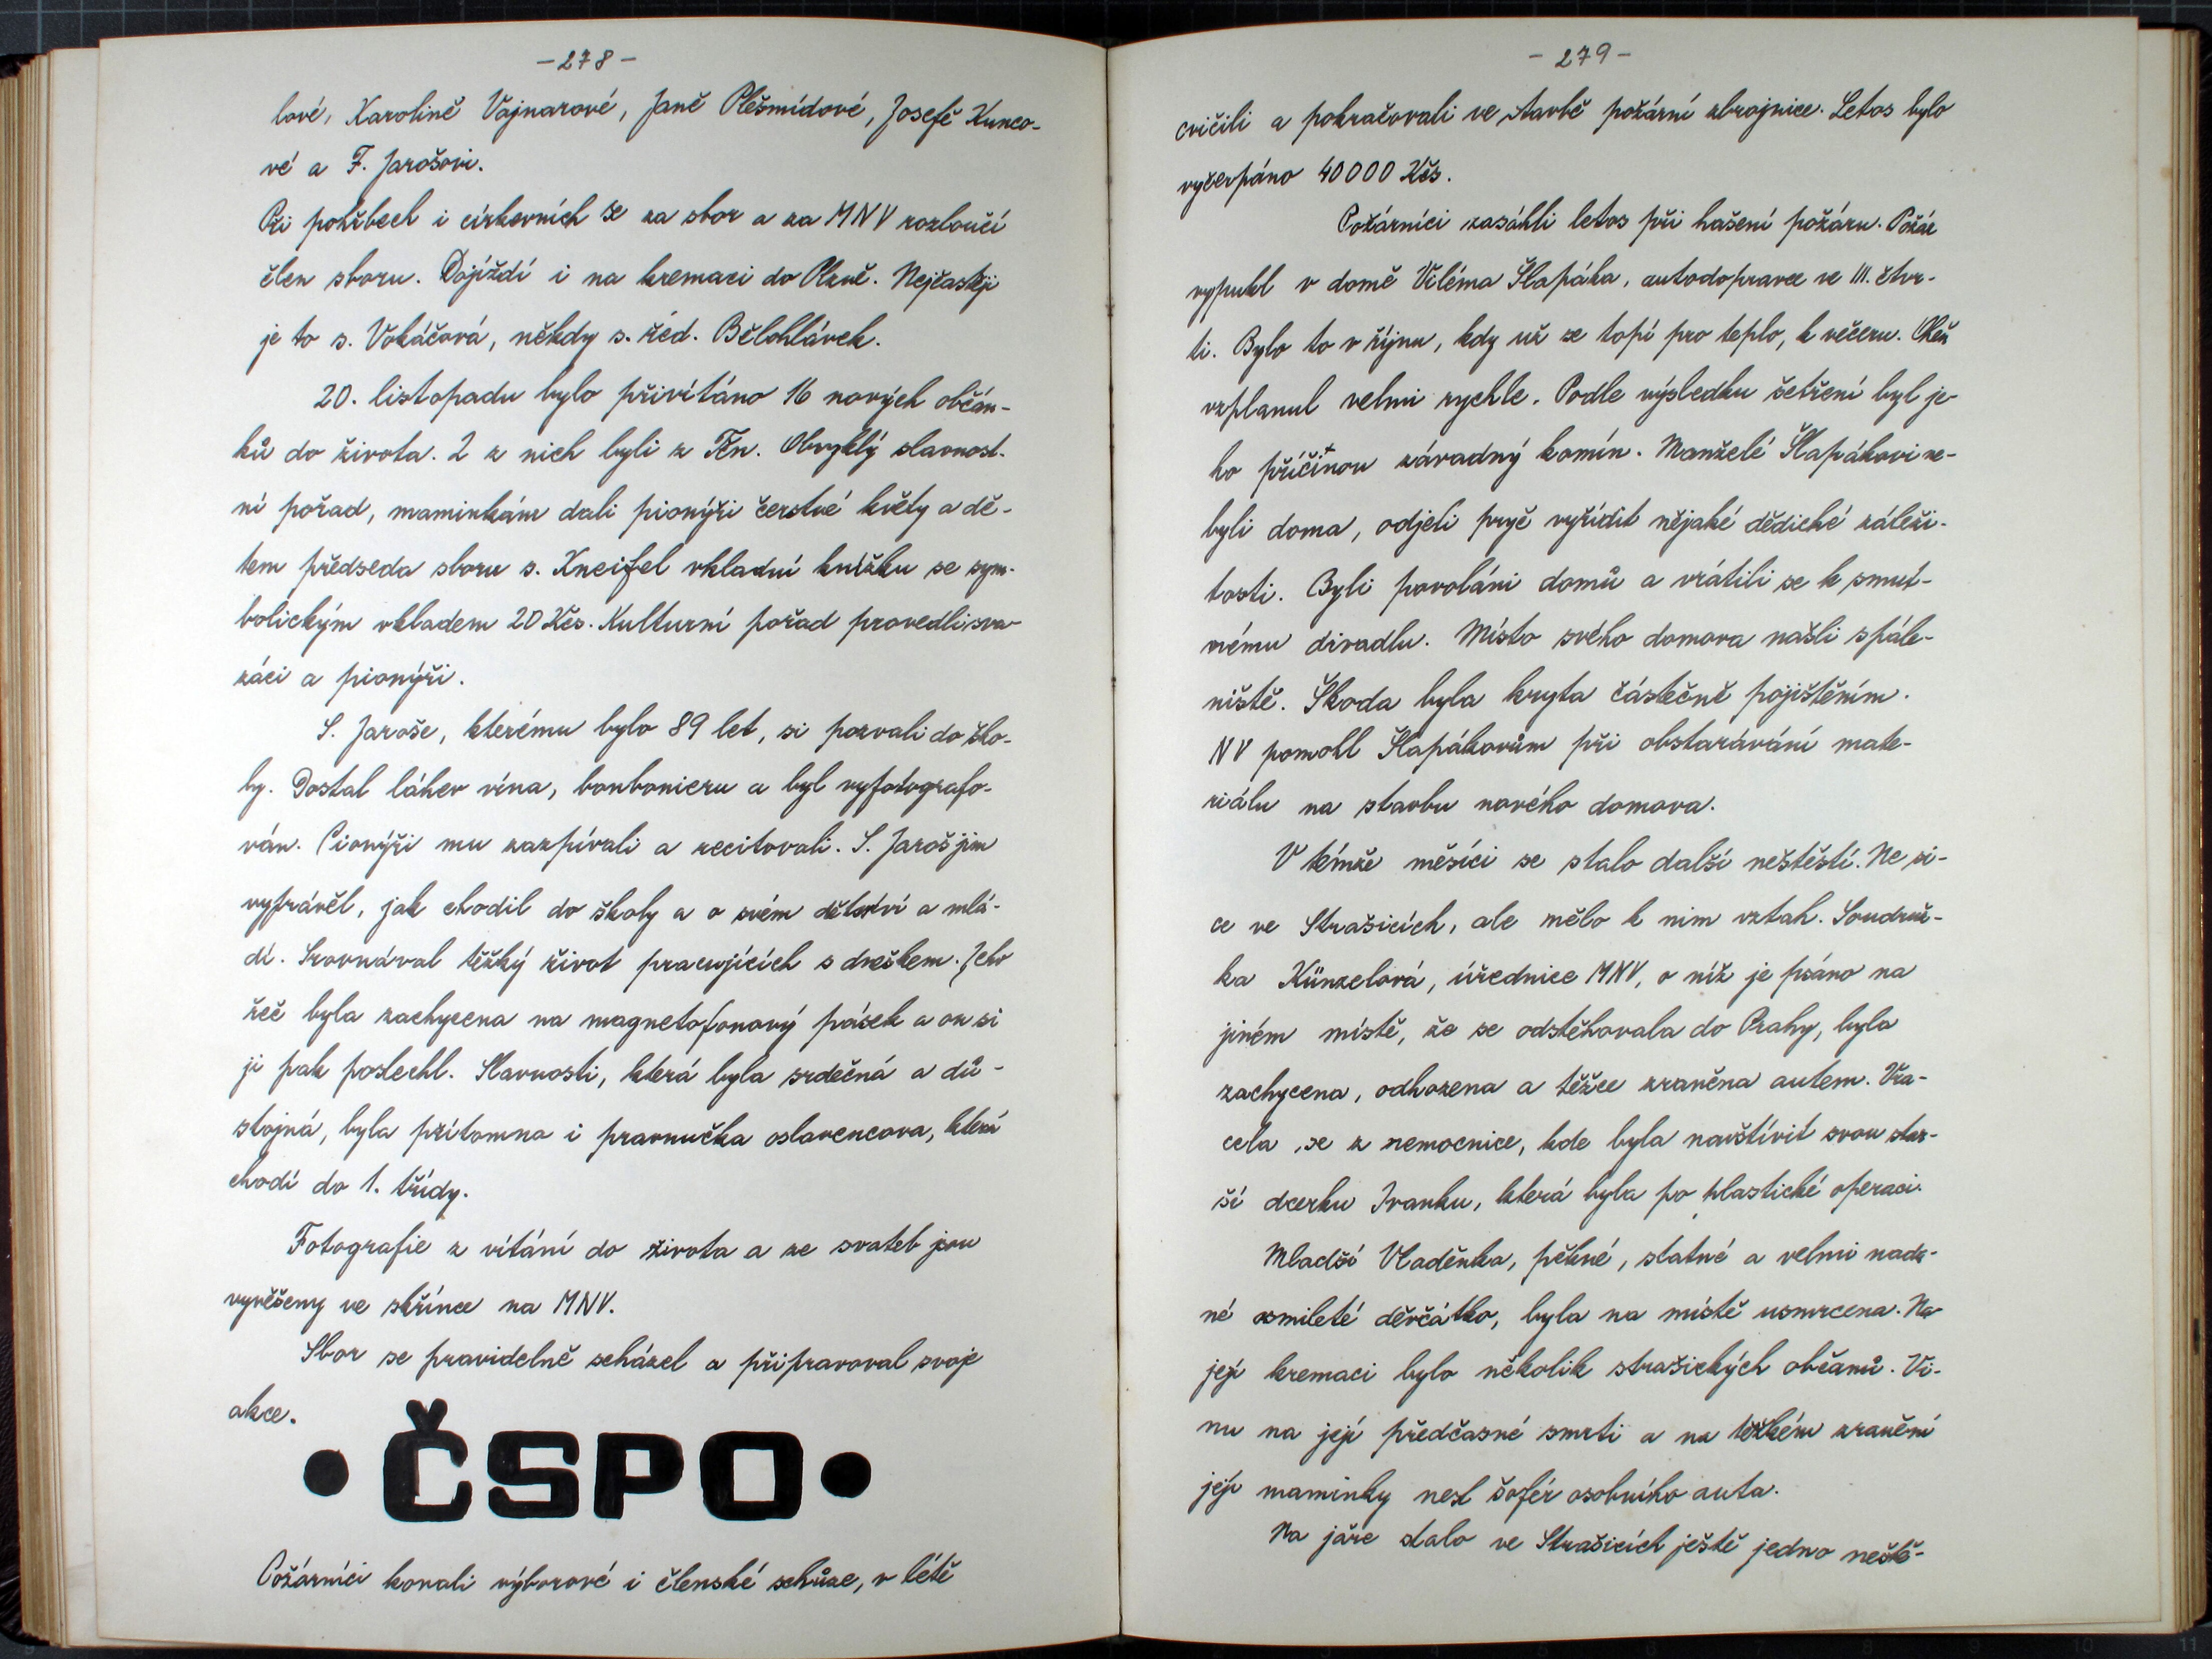 -278-
lové, Karolině Vajnarové, Janě Plešmídové, Josefě Kunco-
vé a F. Jarošovi.
Při pohřbech i církevních se za sbor a za MNV rozloučí
člen sboru. Dojíždí i na kremaci do Plzně. Nejčastěji
je to s. Vokáčová, někdy s. řed. Bělohlávek.
20. listopadu bylo přivítáno 16 nových občán-
ků do života. 2 z nich byli z Těn. Obvyklý slavnost-
ní pořad, maminkám dali pionýři čerstvé květy a dě-
tem předseda sboru s. Kneifel vkladní knížku se sym-
bolickým vkladem 20 Kčs. Kulturní pořad provedli sva-
záci a pionýři.
S. Jaroše, kterému bylo 89 let, si pozvali do ško-
ly. Dostal láhev vína, bonbonieru a byl vyfotografo-
ván. Pionýři mu zazpívali a recitovali. S. Jaroš jim
vyprávěl, jak chodil do školy a o svém dětství a mlá-
dí. Srovnával těžký život pracujících s dneškem. Jeho
řeč byla zachycena na magnetofonový pásek a on si
ji pak poslechl. Slavnosti, která byla srdečná a dů-
stojná, byla přítomna i pravnučka oslavencova, která
chodí do 1. třídy.
Fotografie z vítání do života a ze svateb jsou
vyvěšeny ve skřínce na MNV.
Sbor se pravidelně scházel a připravoval svoje
akce.
• ČSPO •
Požárníci konali výborové i členské schůze, v létě
-279-
cvičili a pokračovali ve stavbě požární zbrojnice. Letos bylo
vyčerpáno 40000 Kčs.
Požárníci zasáhli letos při hašení požáru. Požár
vypukl v domě Viléma Šlapáka, autodopravce ve III. čtvr-
ti. Bylo to v říjnu, kdy už se topí pro teplo, k večeru. Oheň
vzplanul velmi rychle. Podle výsledku šetření byl je-
ho příčinou závadný komín. Manželé Šlapákovi ne-
byli doma, odjeli pryč vyřídit nějaké dědické záleži-
tosti. Byli povoláni domů a vrátili se k smut-
nému divadlu. Místo svého domova našli spále-
niště. Škoda byla kryta částečně pojištěním.
NV pomohl Šlapákovům při obstarávání mate-
riálu na stavbu nového domova.
V témže měsíci se stalo další neštěstí. Ne si-
ce ve Strašicích, ale mělo k nim vztah. Soudruž-
ka Künzelová, úřednice MNV, o níž je psáno na
jiném místě, že se odstěhovala do Prahy, byla
zachycena, odhozena a těžce zraněna autem. Vra-
cela se z nemocnice, kde byla navštívit svou star-
ší dcerku Ivanku, která byla po plastické operaci.
Mladší Vladěnka, pěkné, statné a velmi nada-
né osmileté děvčátko, byla na místě usmrcena. Na
její kremaci bylo několik strašických občanů. Vi-
nu na její předčasné smrti a na těžkém zranění
její maminky nesl šofér osobního auta.
Na jaře stalo ve Strašicích ještě jedno neště-